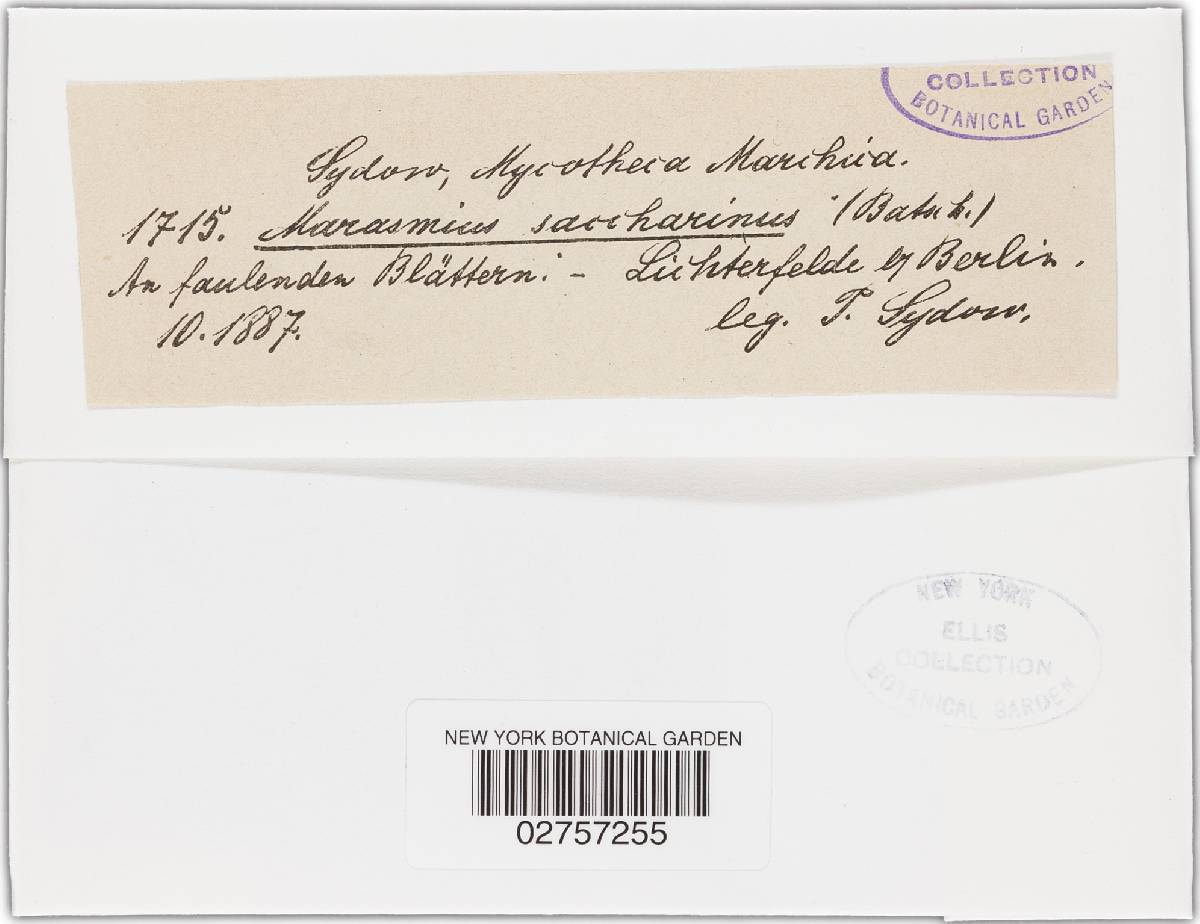 COLLECTION
BOTANICAL GARDEN
Sydow, Mycotheca Marchica.
1715. Marasmius saccharinus (Batsch.)
An faulenden Blättern. – Lichterfelde b/ Berlin.
10.1887. leg. P. Sydow.
NEW YORK
ELLIS
COLLECTION
BOTANICAL GARDEN
NEW YORK BOTANICAL GARDEN
02757255